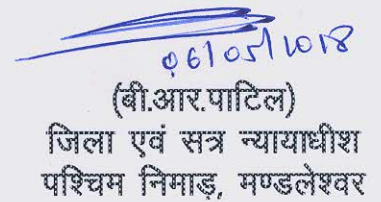 06/05/2018
(बी.आर.पाटिल)
जिला एवं सत्र न्यायाधीश
पश्चिम निमाड़, मण्डलेश्वर